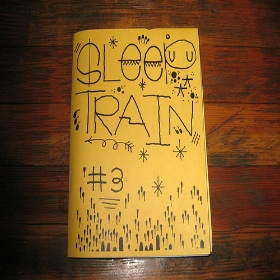 SLEEP
TRAIN
#3